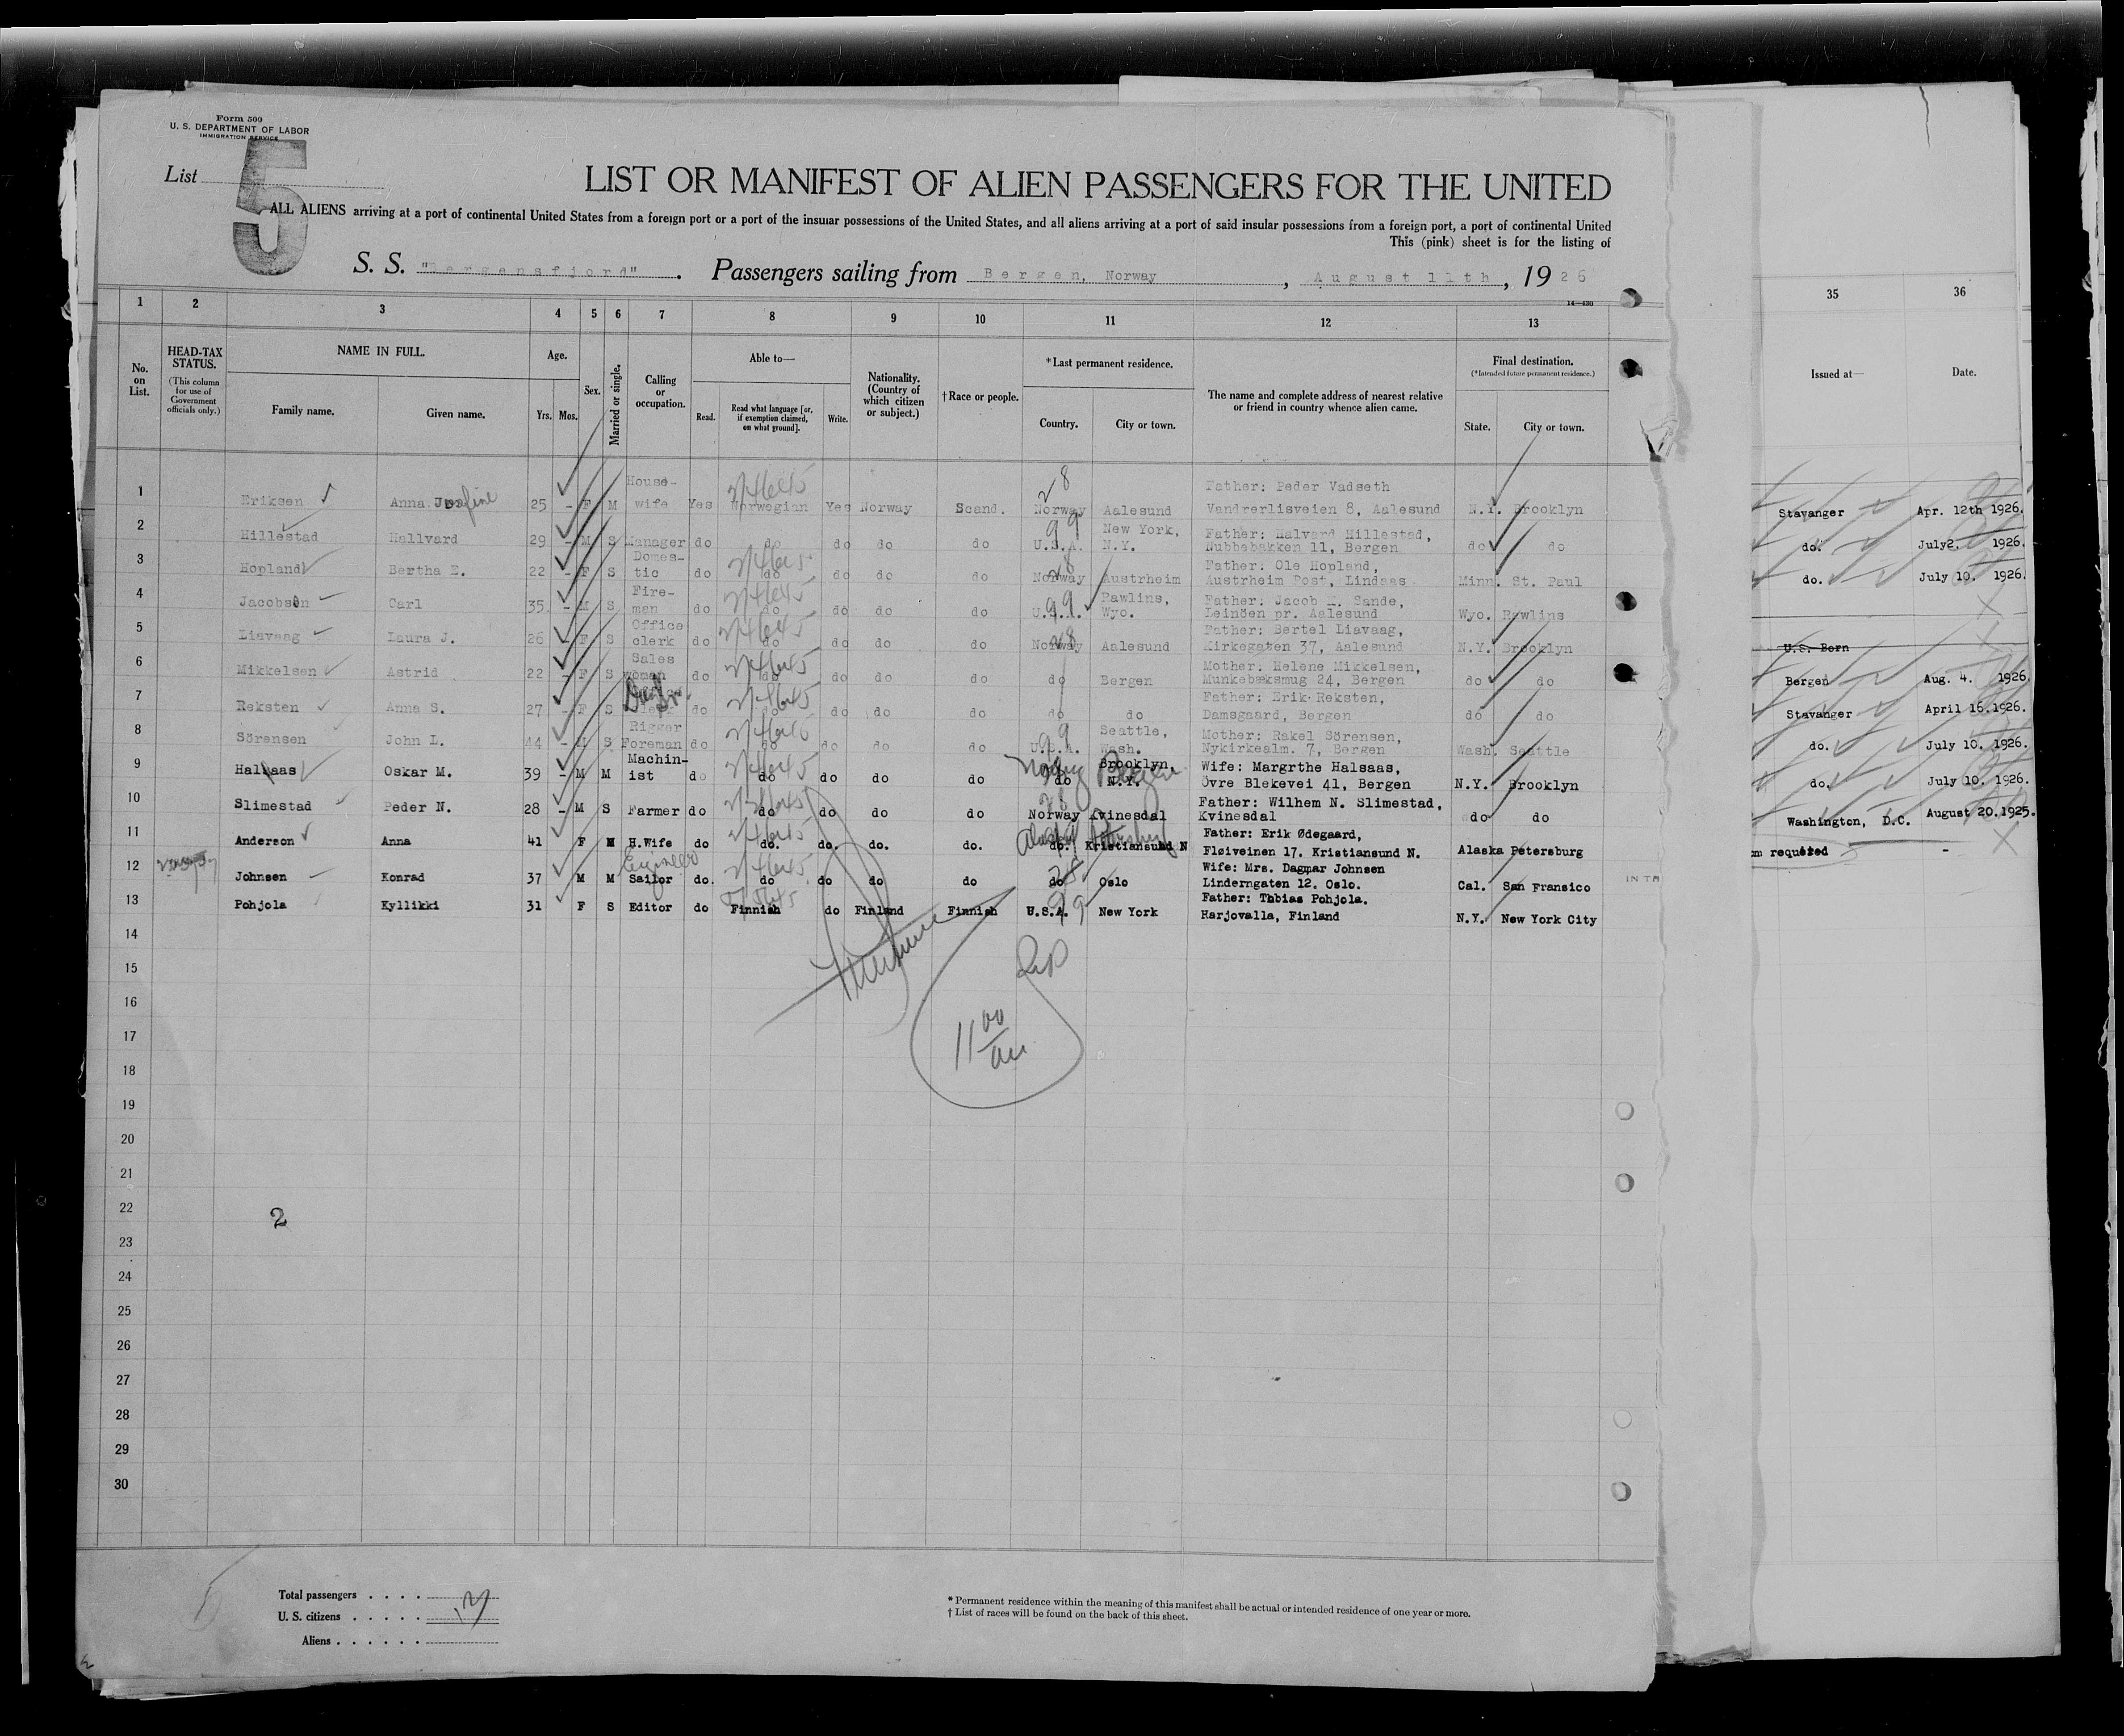 Form 500
U. S. DEPARTMENT OF LABOR
IMMIGRATION SERVICE
List 5
LIST OR MANIFEST OF ALIEN PASSENGERS FOR THE UNITED
ALL ALIENS arriving at a port of continental United States from a foreign port or a port of the insular possessions of the United States, and all aliens arriving at a port of said insular possessions from a foreign port, a port of continental United
This (pink) sheet is for the listing of
S. S. "Bergensfjord" . Passengers sailing from Bergen, Norway , August 11th , 1926
14—430
1 2 3 4 5 6 7 8 9 10 11 12 13 35 36
No. on List.
HEAD-TAX STATUS.
(This column for use of Government officials only.)
NAME IN FULL.
Family name. Given name.
Age.
Yrs. Mos.
Sex.
Married or single.
Calling or occupation.
Able to—
Read. Read what language [or, if exemption claimed, on what ground]. Write.
Nationality. (Country of which citizen or subject.)
† Race or people.
*Last permanent residence.
Country. City or town.
The name and complete address of nearest relative or friend in country whence alien came.
Final destination.
(*Intended future permanent residence.)
State. City or town.
Issued at— Date.
1 Eriksen Anna Josefine 25 - F M House-wife Yes Norwegian Yes Norway Scand. 28 Norway Aalesund Father: Peder Vadseth Vandrerlisveien 8, Aalesund N.Y. Brooklyn Stavanger Apr. 12th 1926.
2 Hillestad Hallvard 29 - M S Manager do do do do do 99 U.S.A. New York, N.Y. Father: Halvard Hillestad, Nubbebakken 11, Bergen do do do. July 2. 1926.
3 Hopland Bertha E. 22 - F S Domes-tic do do do do do Norway Austrheim Father: Ole Hopland, Austrheim Post, Lindaas Minn. St. Paul do. July 10. 1926.
4 Jacobsen Carl 35 - M S Fire-man do do do do do 99 U.S.A. Rawlins, Wyo. Father: Jacob K. Sande, Leinöen pr. Aalesund Wyo. Rawlins
5 Liavaag Laura J. 26 - F S Office clerk do do do do do 28 Norway Aalesund Father: Bertel Liavaag, Kirkegaten 37, Aalesund N.Y. Brooklyn U.S. Born
6 Mikkelsen Astrid 22 - F S Sales woman do do do do do do Bergen Mother: Helene Mikkelsen, Munkebæksmug 24, Bergen do do Bergen Aug. 4. 1926.
7 Reksten Anna S. 27 - F S do do do do do do do Father: Erik Reksten, Damsgaard, Bergen do do Stavanger April 16.1926.
8 Sörensen John L. 44 - M S Rigger Foreman do do do do do 99 U.S.A. Seattle, Wash. Mother: Rakel Sörensen, Nykirkealm. 7, Bergen Wash. Seattle do. July 10. 1926.
9 Halsaas Oskar M. 39 - M M Machin-ist do do do do do do Norway Brooklyn, N.Y. Bergen Wife: Margrthe Halsaas, Övre Blekevei 41, Bergen N.Y. Brooklyn do. July 10. 1926.
10 Slimestad Peder N. 28 - M S Farmer do do do do do 28 Norway Kvinesdal Father: Wilhem N. Slimestad, Kvinesdal do do Washington, D.C. August 20.1925.
11 Anderson Anna 41 F M H.Wife do do. do. do. do. do. Alaska Kristiansund N Petersburg Father: Erik Ødegaard, Fløiveinen 17. Kristiansund N. Alaska Petersburg requested -
12 Johnsen Konrad 37 M M Engineer Sailor do. do do do do do Oslo Wife: Mrs. Dagmar Johnsen Linderngaten 12. Oslo. Cal. San Fransico
13 Pohjola Kyllikki 31 F S Editor do Finnish do Finland Finnish 99 U.S.A. New York Father: Tobias Pohjola. Harjovalla, Finland N.Y. New York City
14
15
16
17
18
19
20
21
22
23
24
25
26
27
28
29
30
11 00 am
2
Total passengers . . . .
U. S. citizens . . . . .
Aliens . . . . . .
* Permanent residence within the meaning of this manifest shall be actual or intended residence of one year or more.
† List of races will be found on the back of this sheet.